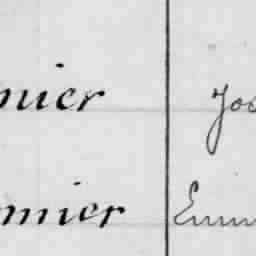 nier Jos
mier Emm